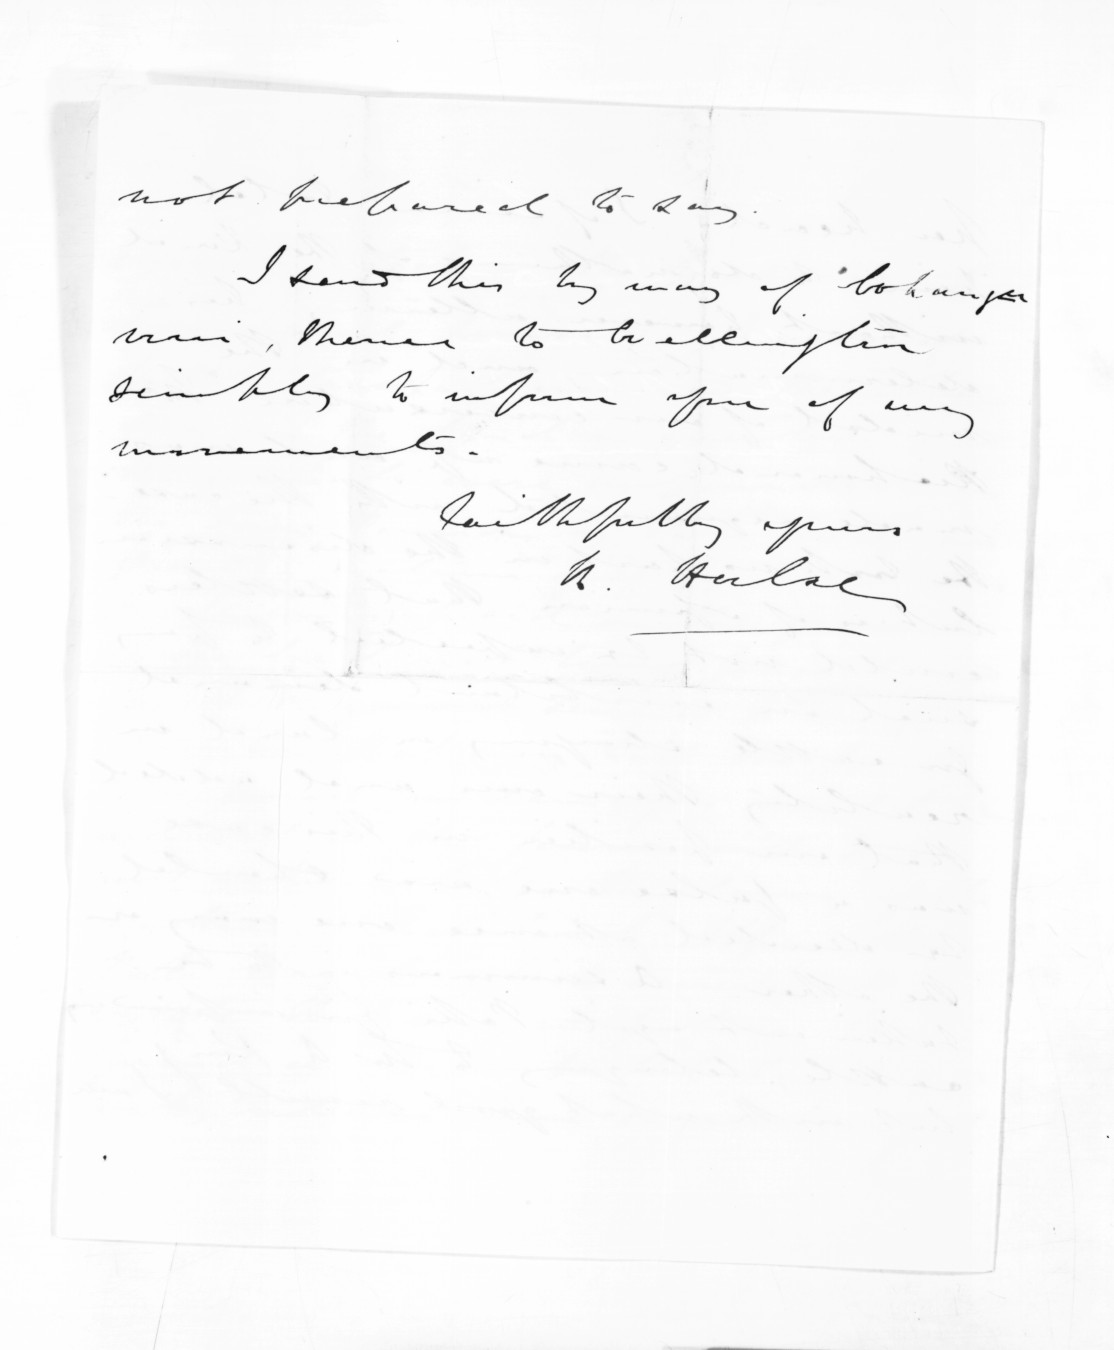 not prepared to say.
I send this by way of Whangaa
rini, thence to Wellington
simply to inform you of my
movements.
Faithfully yours
W. Hulse